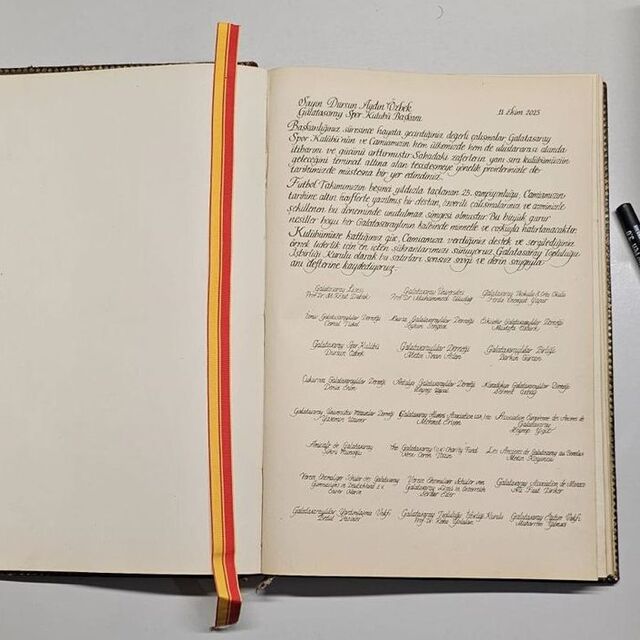 Sayın Dursun Aydın Özbek
Galatasaray Spor Kulübü Başkanı
11 Ekim 2025
Başkanlığınız süresince hayata geçirdiğiniz değerli çalışmalar, Galatasaray
Spor Kulübü'nün ve Camiamızın hem ülkemizde hem de uluslararası alanda
itibarını ve gücünü arttırmıştır. Sahadaki zaferlerin yanı sıra kulübümüzün
geleceğini teminat altına alan tesisleşmeye yönelik projelerinizle de
tarihimizde müstesna bir yer edindiniz.
Futbol Takımımızın beşinci yıldızla taçlanan 25. şampiyonluğu, Camiamızın
tarihine altın harflerle yazılmış bir destan, özverili çalışmalarınız ve azminizle
şekillenen bu döneminde unutulmaz simgesi olmuştur. Bu büyük gurur
nesiller boyu her Galatasaraylının kalbinde minnetle ve coşkuyla hatırlanacaktır.
Kulübümüze kattığınız güç, Camiamıza verdiğiniz destek ve sergilediğiniz
örnek liderlik için en içten şükranlarımızı sunuyoruz. Galatasaray Topluluğu
İşbirliği Kurulu olarak bu satırları sonsuz sevgi ve derin saygıyla
anı defterine kaydediyoruz.
Galatasaray Lisesi Galatasaray Üniversitesi Galatasaray İlkokulu & Orta Okulu
Prof. Dr. M. Prof. Dr. Muhammed
İzmir Galatasaraylılar Derneği Bursa Galatasaraylılar Derneği Eskişehir Galatasaraylılar Derneği
Cemal
Galatasaray Spor Kulübü Galatasaraylılar Derneği Galatasaraylılar Birliği
Dursun Özbek Metin Sinan Aslan
Çukurova Galatasaraylılar Derneği Antalya Galatasaraylılar Derneği Karadeniz Galatasaraylılar Derneği
Deniz
Galatasaray Üniversitesi Mezunları Derneği Galatasaray Alumni Association Association Européenne des Anciens de Galatasaray
Mehmet
Amicale de Galatasaray The Galatasaray Charity Fund Les Anciens de Galatasaray au Benelux
Metin
Verein Ehemaliger Schüler des Galatasaray Verein Ehemaliger Schüler von Galatasaray Association de Monaco
Gymnasiums in Deutschland e.V. Galatasaray Lisesi in Österreich
Serdar
Galatasaraylılar Yardımlaşma Vakfı Galatasaray Topluluğu İşbirliği Kurulu Galatasaray Eğitim Vakfı
Prof. Dr.